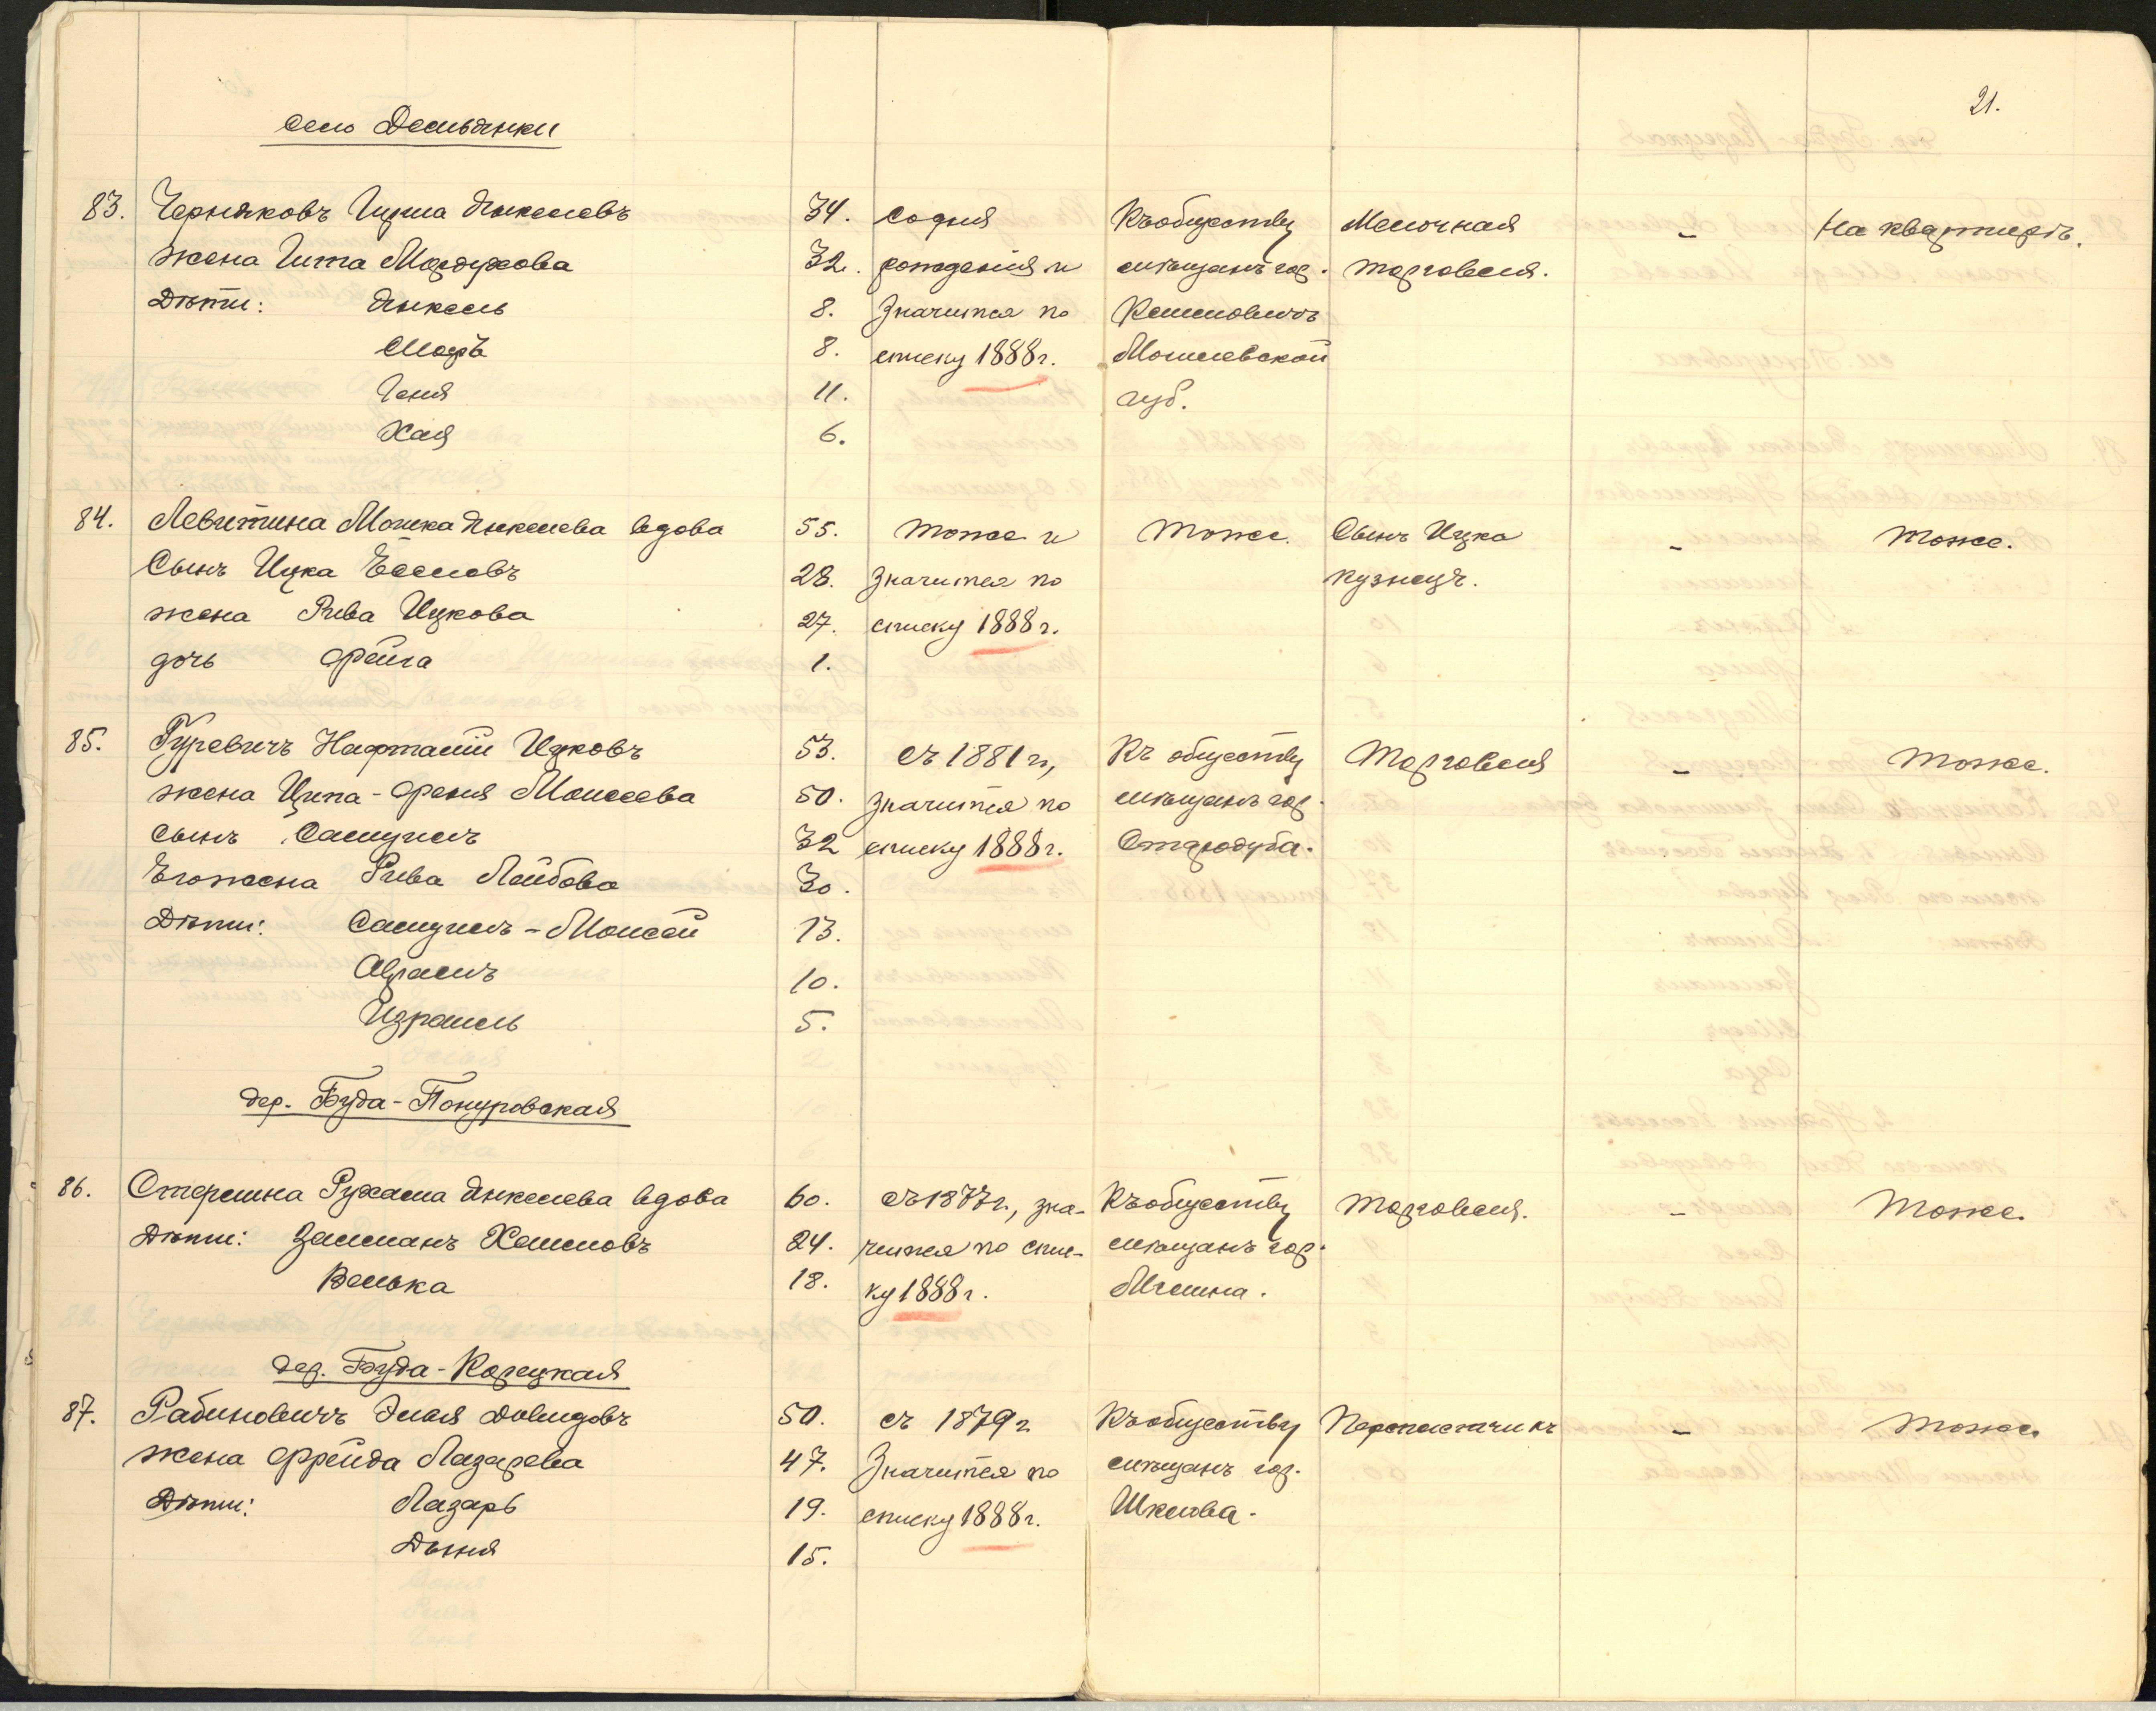 21.
село Демьянки
83. Черняковъ Гирша Янкелевъ 34. со дня Къ обществу Мелочная - На квартирѣ.
жена Гита Мордухова 32. рожденія и мѣщанъ гор. торговля.
Дѣти: Янкель 8. Значится по Климовичъ
Мееръ 8. списку 1888 г. Могилевской
Геня 11. губ.
Хая 6.
84. Левитина Янкелева вдова 55. тоже и тоже. Сынъ Ицка - тоже.
Сынъ Ицка Ёселовъ 28. Значится по кузнецъ.
жена Рива Ицкова 27. списку 1888 г.
дочь Фейга 1.
85. Гуревичъ Нафталій Ицковъ 53. съ 1881 г., Къ обществу Торговля - тоже.
жена Ципа-Френя Моисеева 50. значится по мѣщанъ гор.
сынъ Самуилъ 32 списку 1888 г. Стародуба.
Его жена Рива Лейбова 30.
Дѣти: Самуилъ-Моисей 13.
Абрамъ 10.
Израиль 5.
дер. Буда-Понуровская
86. Стерлина Рухама Янкелева вдова 60. съ 1877 г., зна- Къ обществу торговля. - тоже.
Дѣти: Залманъ Хаимовъ 24. чится по спис- мѣщанъ гор.
Велька 18. ку 1888 г. Мглина.
дер. Буда-Корецкая
87. Рабиновичъ Элья Довидовъ 50. съ 1879 г Къ обществу Переплетчикъ - тоже.
жена Фрейда Лазарева 47. Значится по мѣщанъ гор.
Дѣти: Лазарь 19. списку 1888 г. Шклова.
Дыня 15.